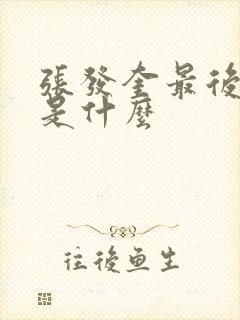 張發奎最後
是什麼
往後鱼生